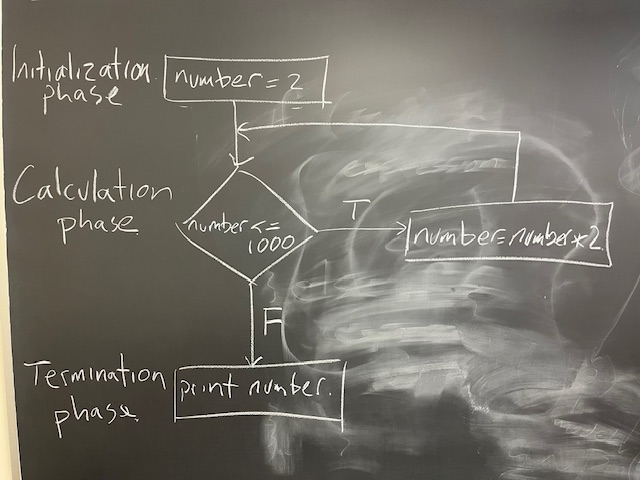 Initialization
phase
number = 2
Calculation
phase
number <=
1000
T
number = number * 2
F
Termination
phase
print number.